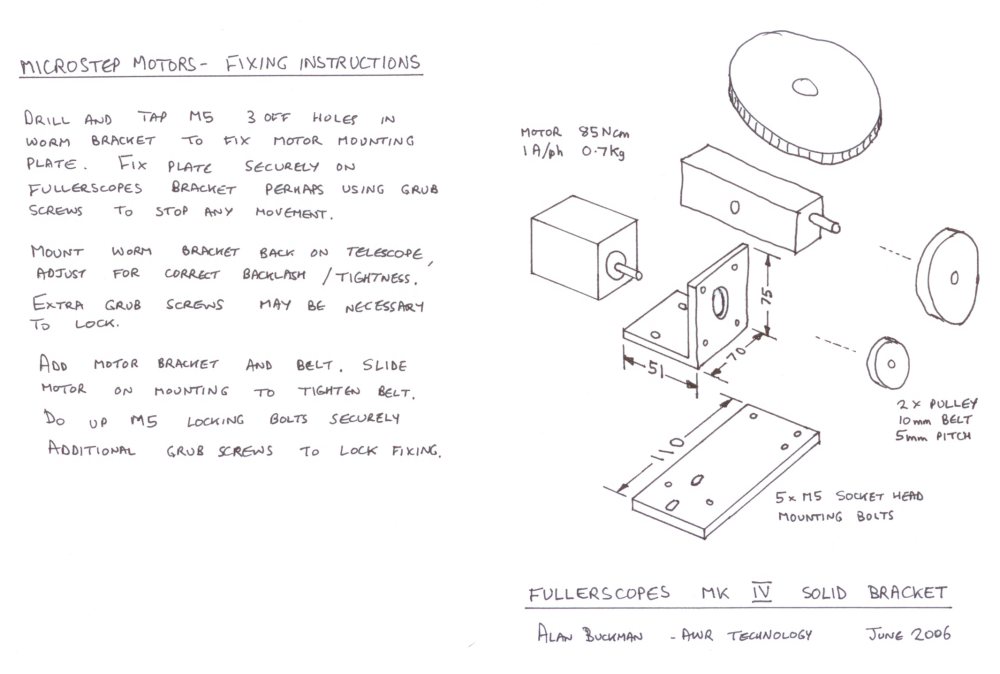 MICROSTEP MOTORS - FIXING INSTRUCTIONS
DRILL AND TAP M5 3 OFF HOLES IN
WORM BRACKET TO FIX MOTOR MOUNTING
PLATE. FIX PLATE SECURELY ON
FULLERSCOPES BRACKET PERHAPS USING GRUB
SCREWS TO STOP ANY MOVEMENT.
MOUNT WORM BRACKET BACK ON TELESCOPE,
ADJUST FOR CORRECT BACKLASH / TIGHTNESS.
EXTRA GRUB SCREWS MAY BE NECESSARY
TO LOCK.
ADD MOTOR BRACKET AND BELT. SLIDE
MOTOR ON MOUNTING TO TIGHTEN BELT.
DO UP M5 LOCKING BOLTS SECURELY
ADDITIONAL GRUB SCREWS TO LOCK FIXING.
MOTOR 85Ncm
1A/ph 0.7Kg
75
70
51
110
2 x PULLEY
10mm BELT
5mm PITCH
5 x M5 SOCKET HEAD
MOUNTING BOLTS
FULLERSCOPES MK IV SOLID BRACKET
ALAN BUCKMAN - AWR TECHNOLOGY JUNE 2006